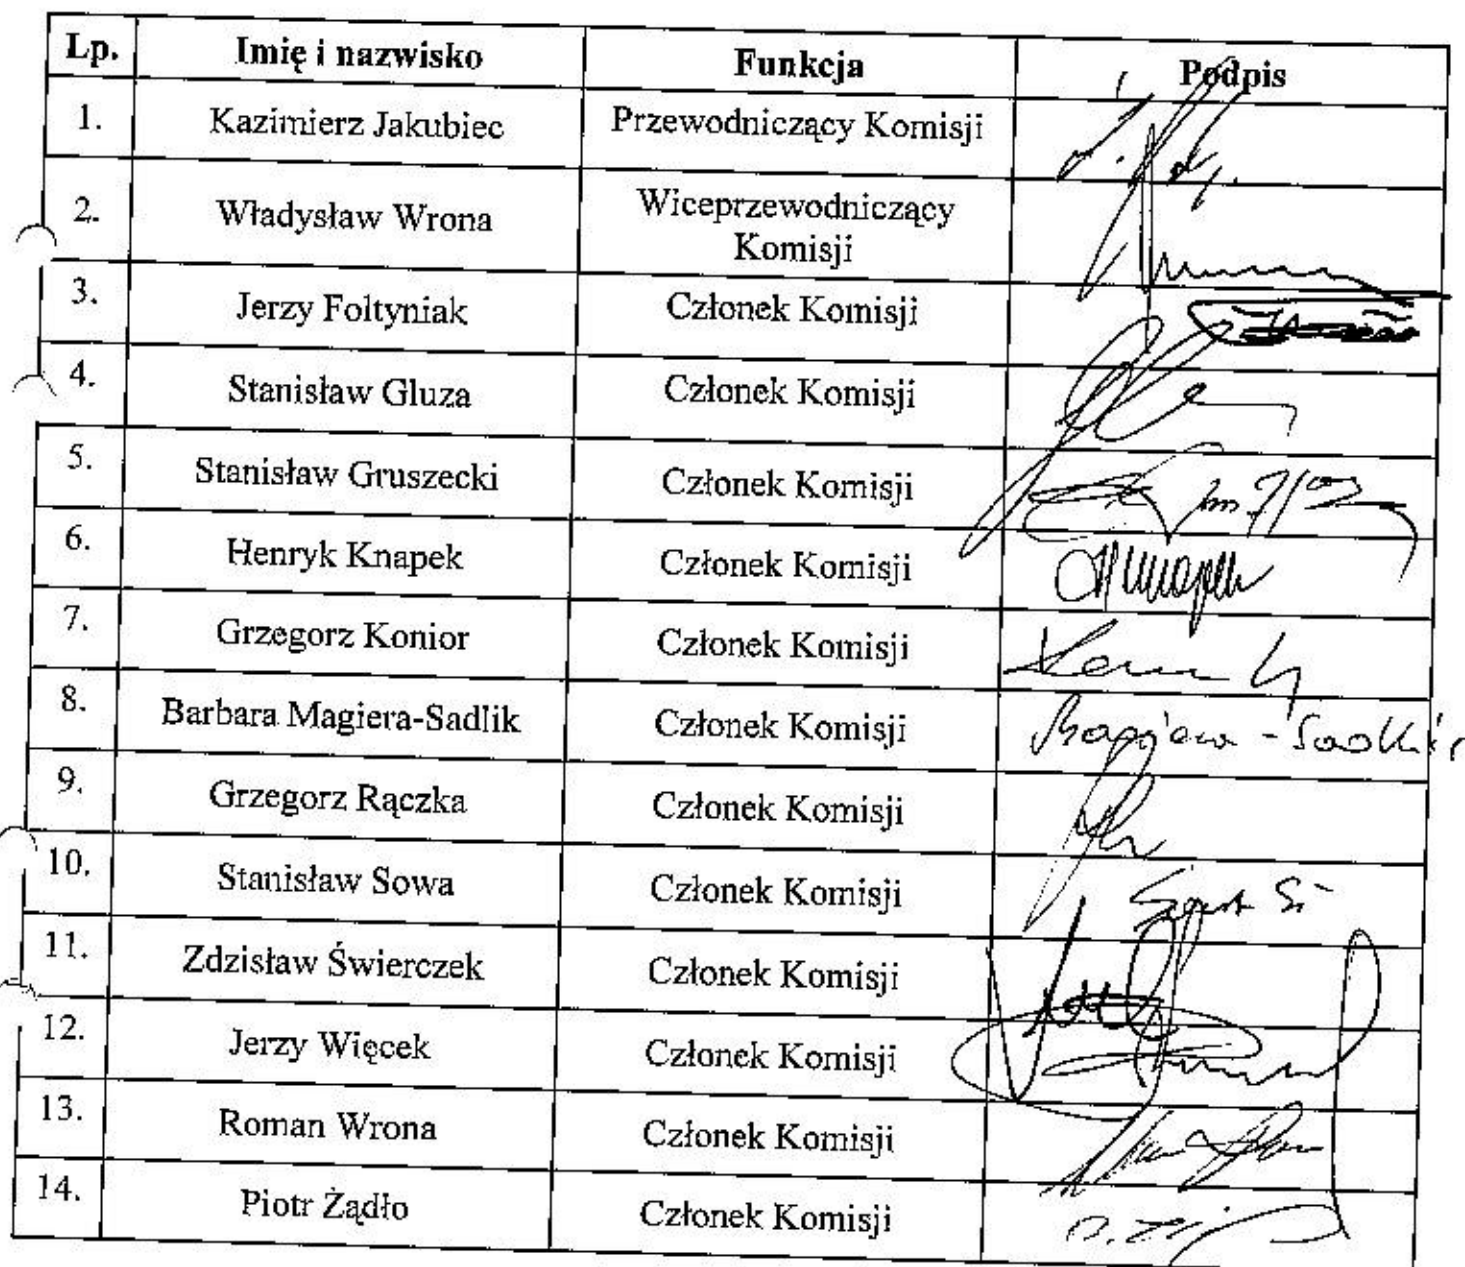 Lp. Imię i nazwisko Funkcja Podpis
1. Kazimierz Jakubiec Przewodniczący Komisji
2. Władysław Wrona Wiceprzewodniczący
Komisji
3. Jerzy Foltyniak Członek Komisji
4. Stanisław Gluza Członek Komisji
5. Stanisław Gruszecki Członek Komisji
6. Henryk Knapek Członek Komisji
7. Grzegorz Konior Członek Komisji
8. Barbara Magiera-Sadlik Członek Komisji Magiera-Sadlik
9. Grzegorz Rączka Członek Komisji
10. Stanisław Sowa Członek Komisji
11. Zdzisław Świerczek Członek Komisji
12. Jerzy Więcek Członek Komisji
13. Roman Wrona Członek Komisji
14. Piotr Żądło Członek Komisji